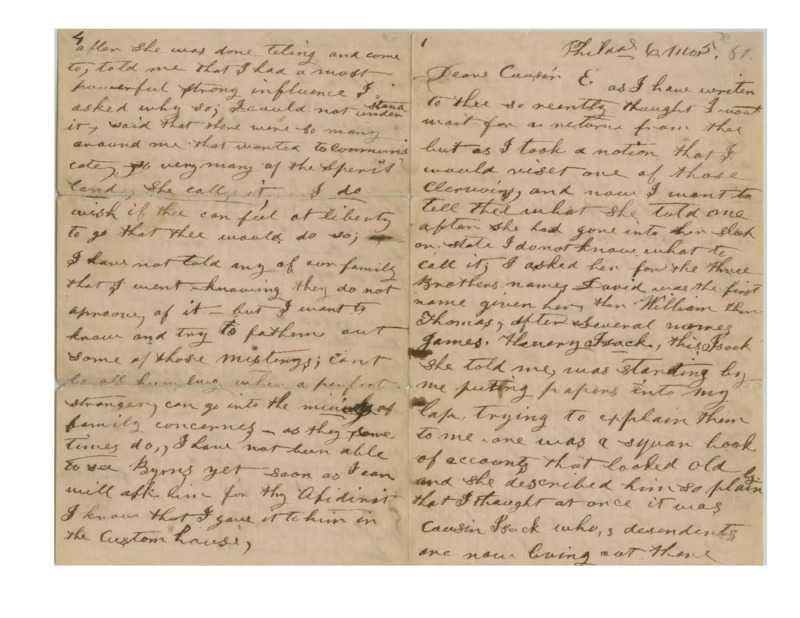 1
Philada 6 Mo 5. 61.
Deare Cousin E. as I have writen
to thee so reantly thought I wont
wait for a returne from thee
but as I took a notion that I
would viset one of those
Clervoys, and now I want to
tell thee what she told me
after she had gone into her sleep
or state I do not know what to
call it; I asked her for the three
Brothers names David was the first
name given her, then William then
Thomas, after several names
James. Henery Isack, this Isack
she told me, was standing by
me puting papers into my
lap trying to explain them
to me one was a squar book
of accounts that looked old
and she described him so plain
that I thought at once it was
Cousin Isack who,s desendents
are now living out there
4
after she was done teling and come
to, told me that I had a most
powerful strong influence I
asked why so; I could not stand under
it, said that there were so many
around me that wanted to communi
cate, so very many of the Sperit
land, She call it I do
wish if thee can feel at liberty
to go that thee would do so;
I have not told any of our family
that I went knowing they do not
aproove of it but I want to
know and try to fathem out
some of those mistings; cant
be all hum bug when a perfect
stranger, can go into the minuts of
family concernes as they some
times do,, I have not been able
to see Byrns yet soon as I can
will ask him for thy Afidivat
I know that I gave it to him in
the Custom house,